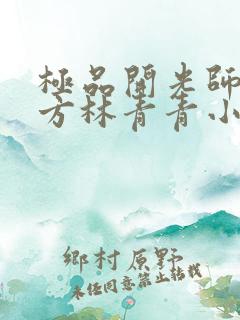 極品開光師
方林青青小
鄉村原野
未經同意禁止轉載